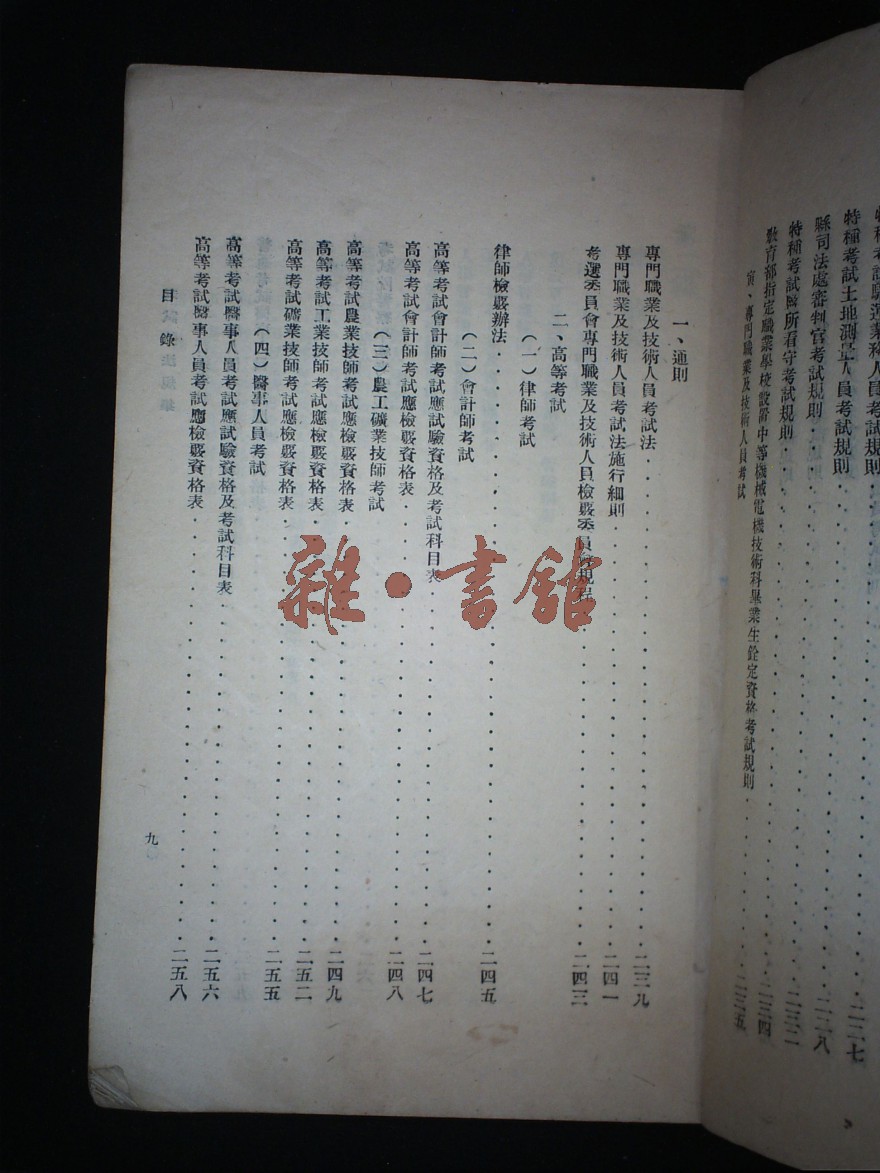 特種考試土地測量人員考試規則 二二八
縣司法處審判官考試規則
特種考試監所看守考試規則 二三四
教育部指定職業學校設置中等機械電機技術科畢業生銓定資格考試規則 二三五
寅、專門職業及技術人員考試
一、通則
專門職業及技術人員考試法 二三九
專門職業及技術人員考試法施行細則 二四一
考選委員會專門職業及技術人員檢覈委員會規程 二四三
二、高等考試
(一)律師考試
律師檢覈辦法 二四五
(二)會計師考試
高等考試會計師考試應試驗資格及考試科目表 二四七
高等考試會計師考試應檢覈資格表 二四八
(三)農工礦業技師考試
高等考試農業技師考試應檢覈資格表 二四九
高等考試工業技師考試應檢覈資格表 二五二
高等考試礦業技師考試應檢覈資格表 二五五
(四)醫事人員考試
高等考試醫事人員考試應試驗資格及考試科目表 二五六
高等考試醫事人員考試應檢覈資格表 二五八
目錄
九
雜·書館